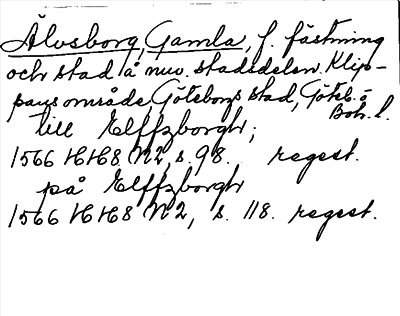 Älvsborg, Gamla, f. fästning
och stad å nuv. stadsdelen Klip-
pans område, Göteborgs stad, Göteb. o.
Boh. l.
till Elffzborgh;
1566 HH8 N2, s. 98. regest.
på Elffzborgh
1566 HH8 N2, s. 118. regest.